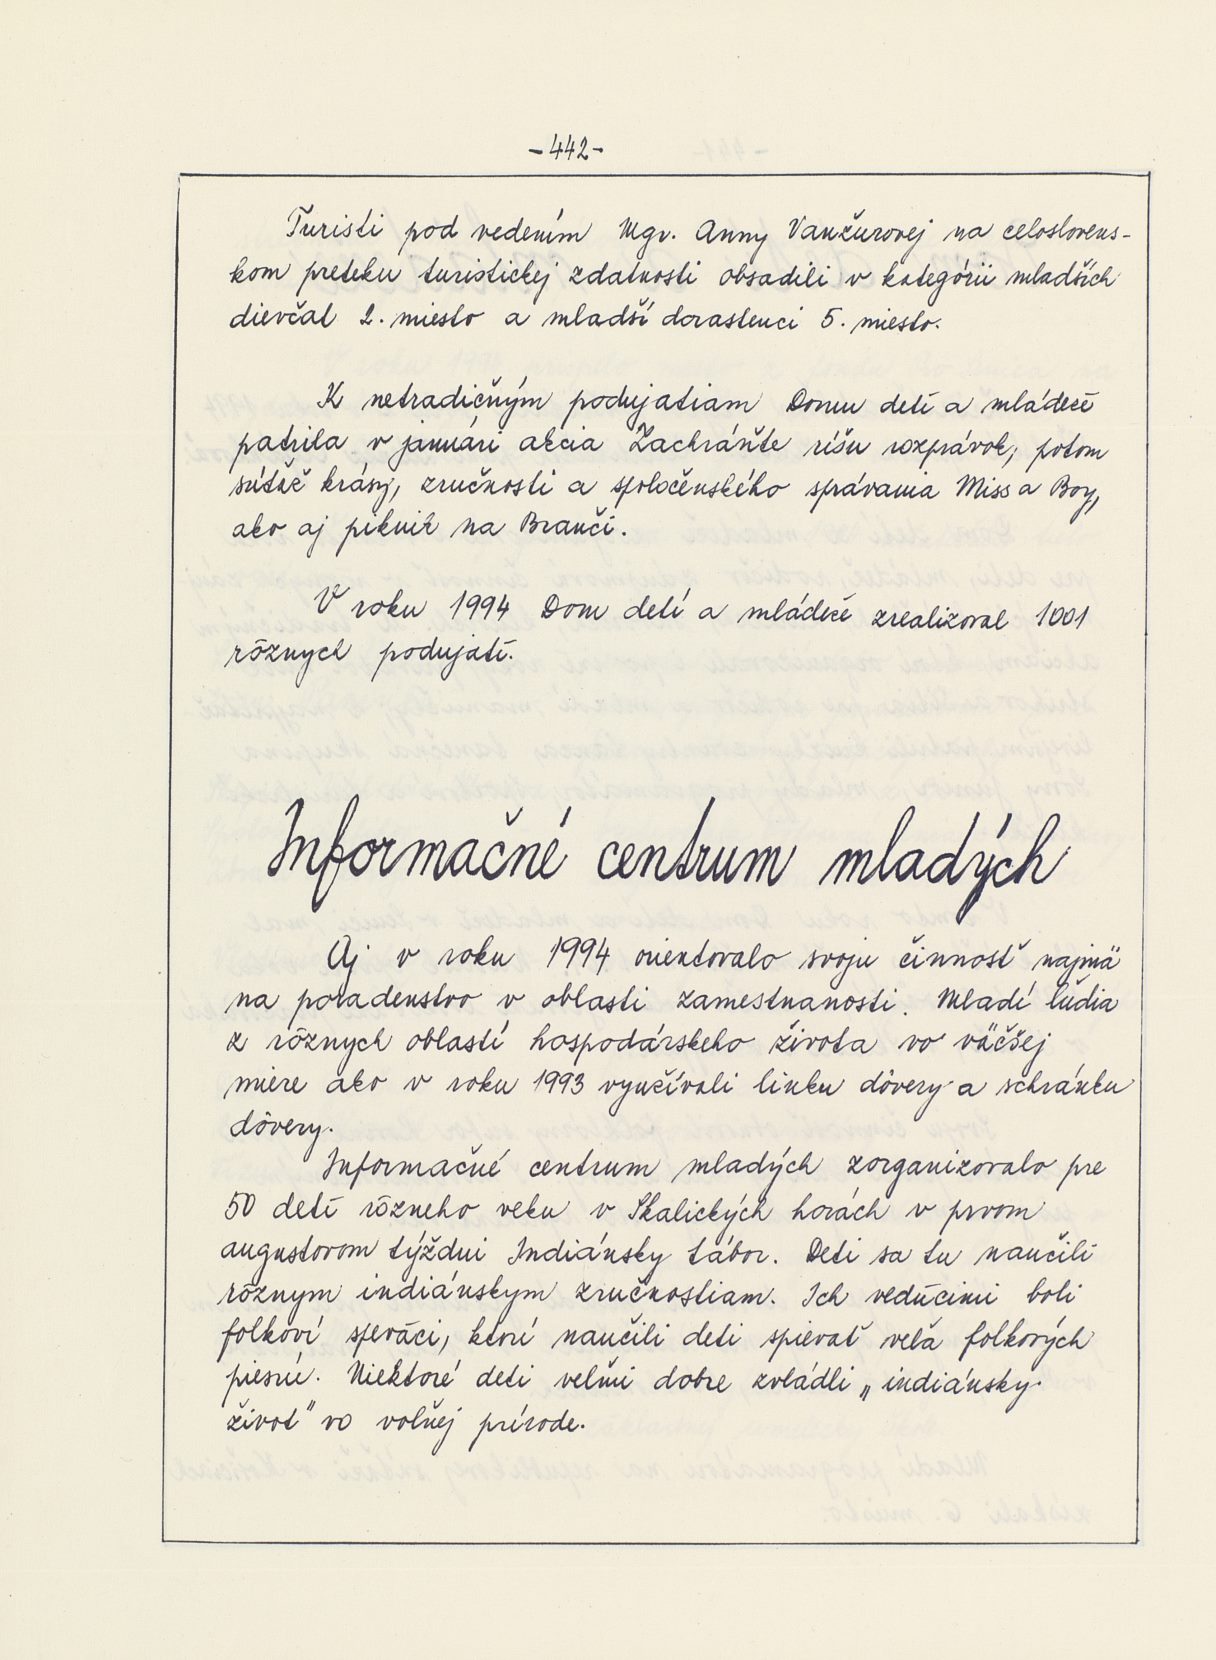 -442-
Turisti pod vedením Mgr. Anny Vanžurovej na celosloven-
skom preteku turistickej zdatnosti obsadili v kategórii mladších
dievčat 2. miesto a mladší dorastenci 5. miesto.
K netradičným podujatiam Domu detí a mládeže
patrila v januári akcia Zachráňte ríšu rozprávok, potom
súťaž krásy, zručnosti a spoločenského správania Miss a Boy,
ako aj piknik na Branči.
V roku 1994 Dom detí a mládeže zrealizoval 1001
rôznych podujatí.
Informačné centrum mladých
Aj v roku 1994 orientovalo svoju činnosť najmä
na poradenstvo v oblasti zamestnanosti. Mladí ľudia
z rôznych oblastí hospodárskeho života vo väčšej
miere ako v roku 1993 využívali linku dôvery a schránku
dôvery.
Informačné centrum mladých zorganizovalo pre
50 detí rôzneho veku v Skalických horách v prvom
augustovom týždni Indiánsky tábor. Deti sa tu naučili
rôznym indiánskym zručnostiam. Ich vedúcimi boli
folkoví speváci, ktorí naučili deti spievať veľa folkových
piesní. Niektoré deti veľmi dobre zvládli „indiánsky
život" vo voľnej prírode.